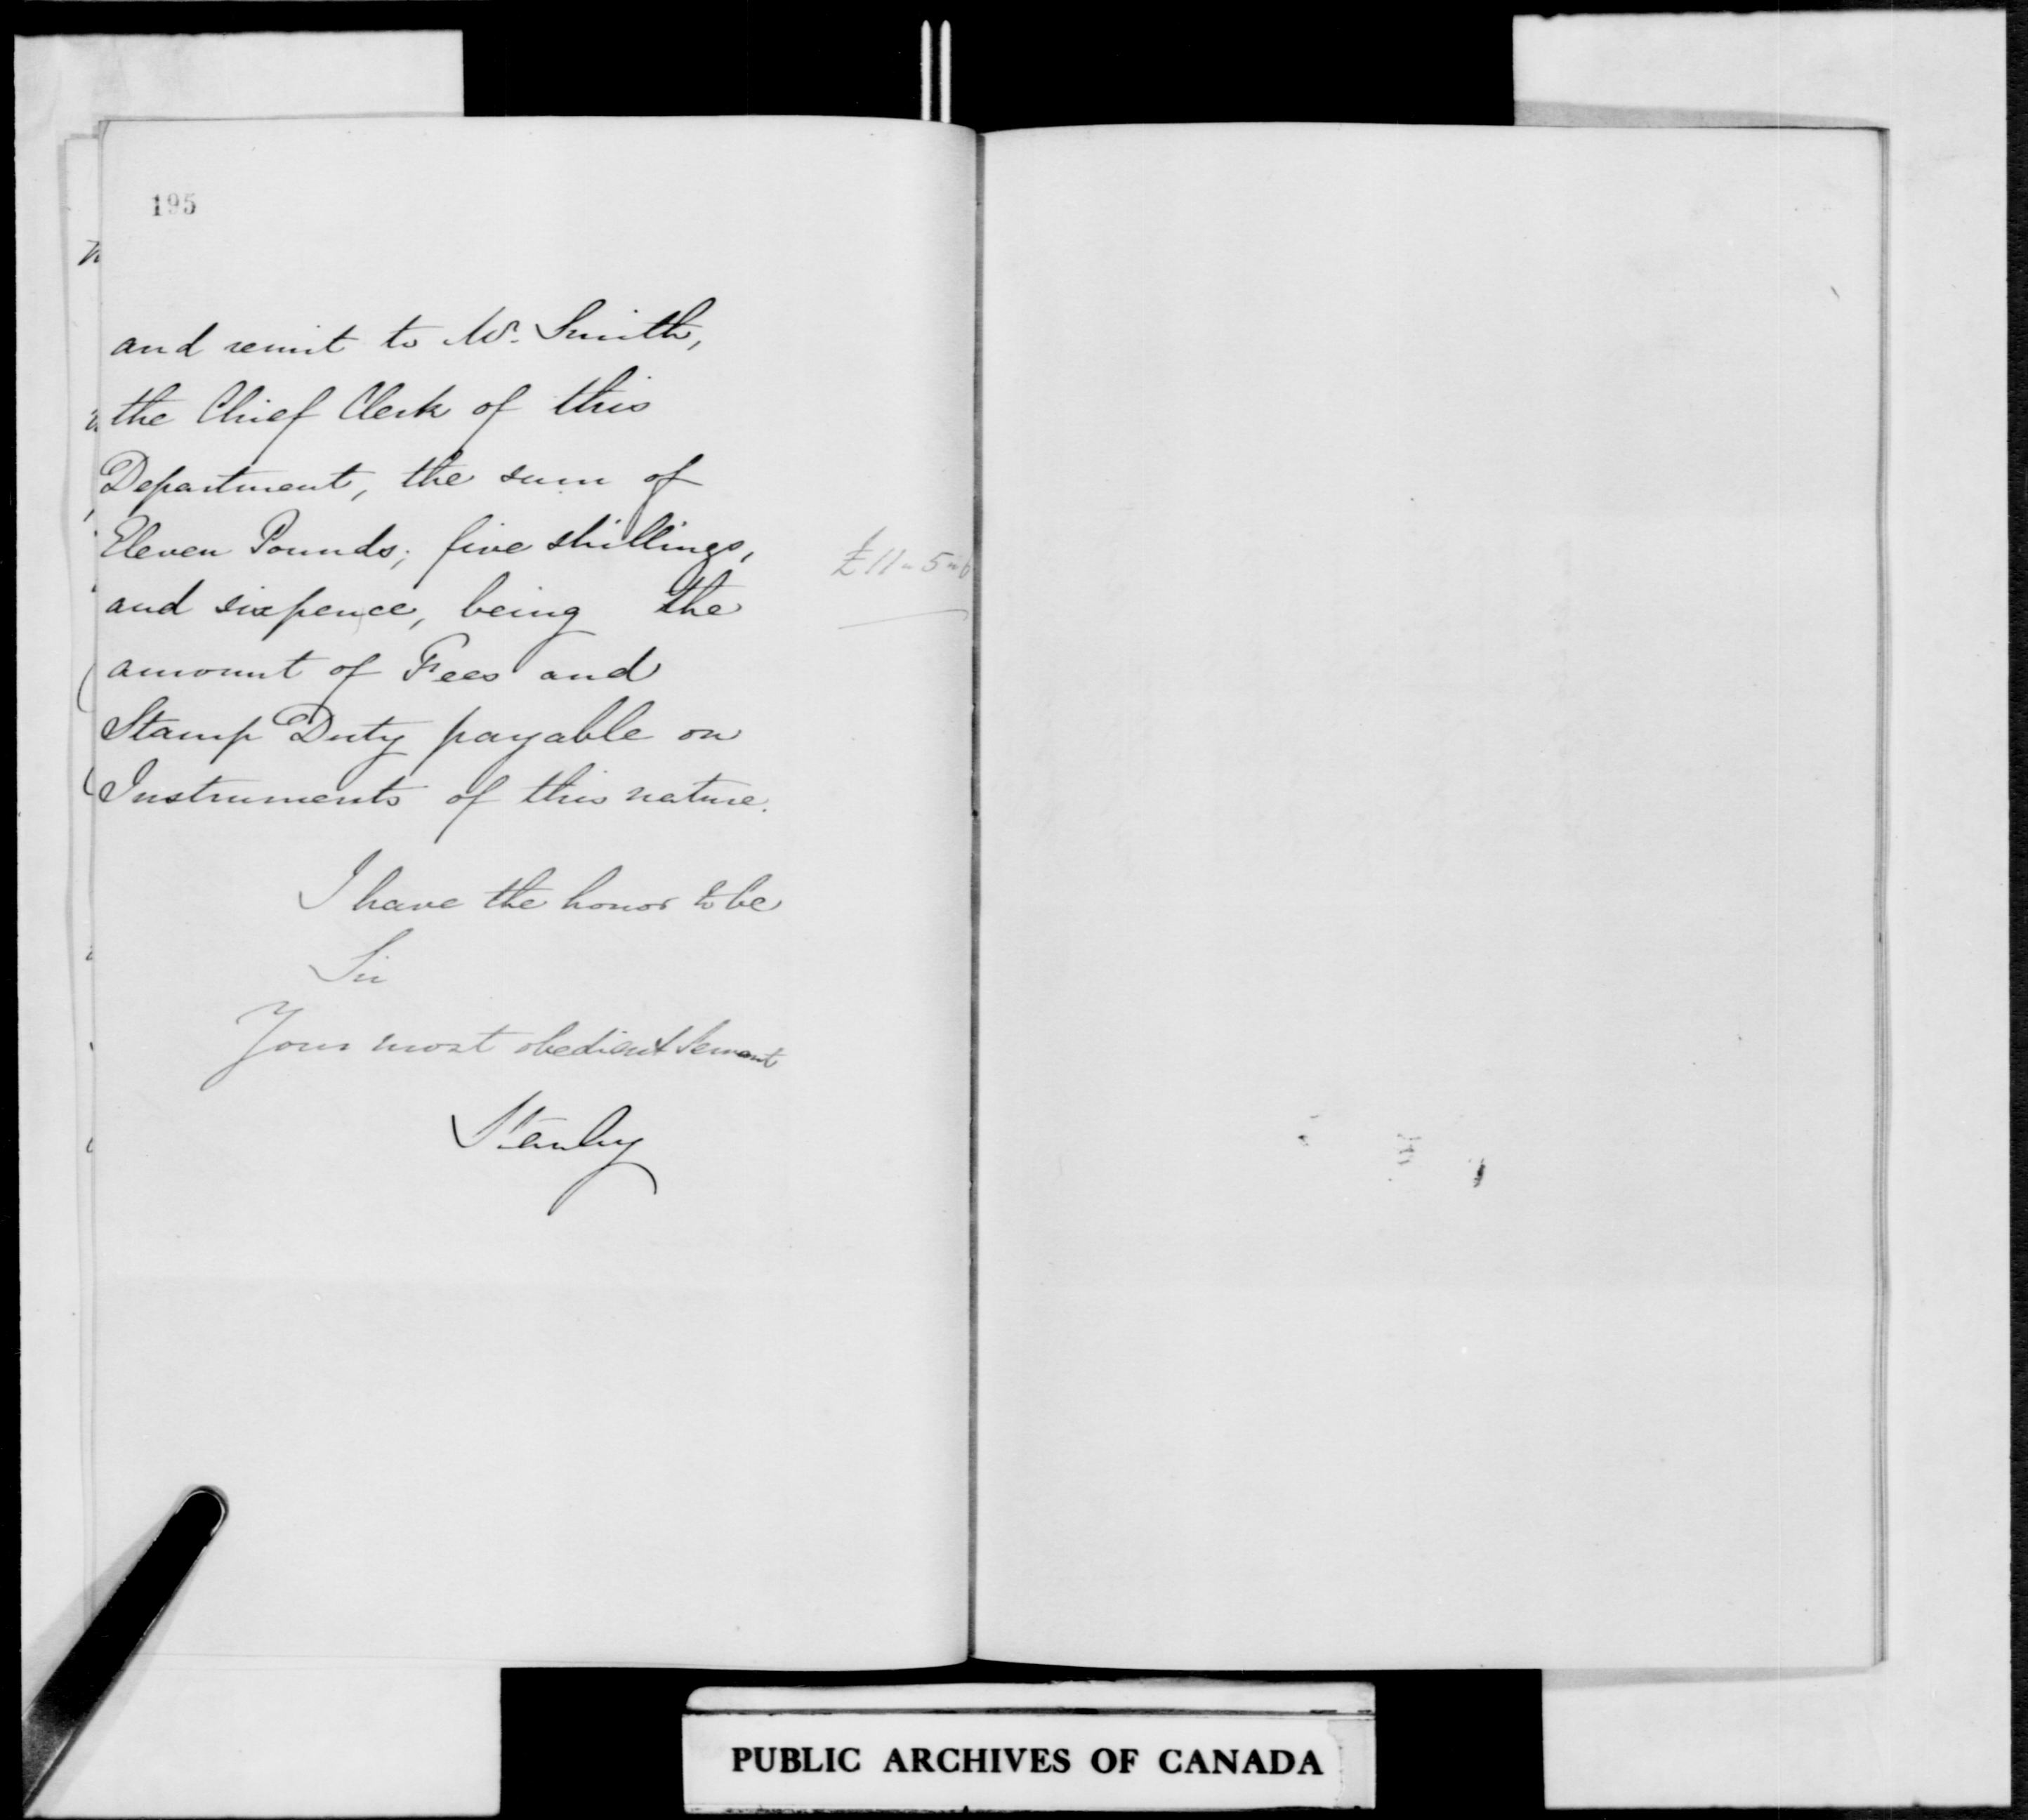 195
and remit to Mr. Smith,
the Chief Clerk of this
Department, the sum of
Eleven Pounds, five shillings,
£11-5-6
and sixpence, being the
amount of Fees and
Stamp Duty payable on
Instruments of this nature.
I have the honor to be
Sir
Your most obedient Servant
Stanley
PUBLIC ARCHIVES OF CANADA